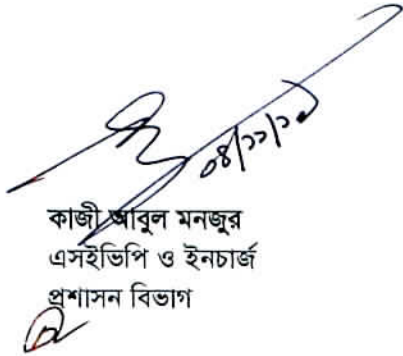 ০৪/১১/১৯
কাজী আবুল মনজুর
এসইভিপি ও ইনচার্জ
প্রশাসন বিভাগ